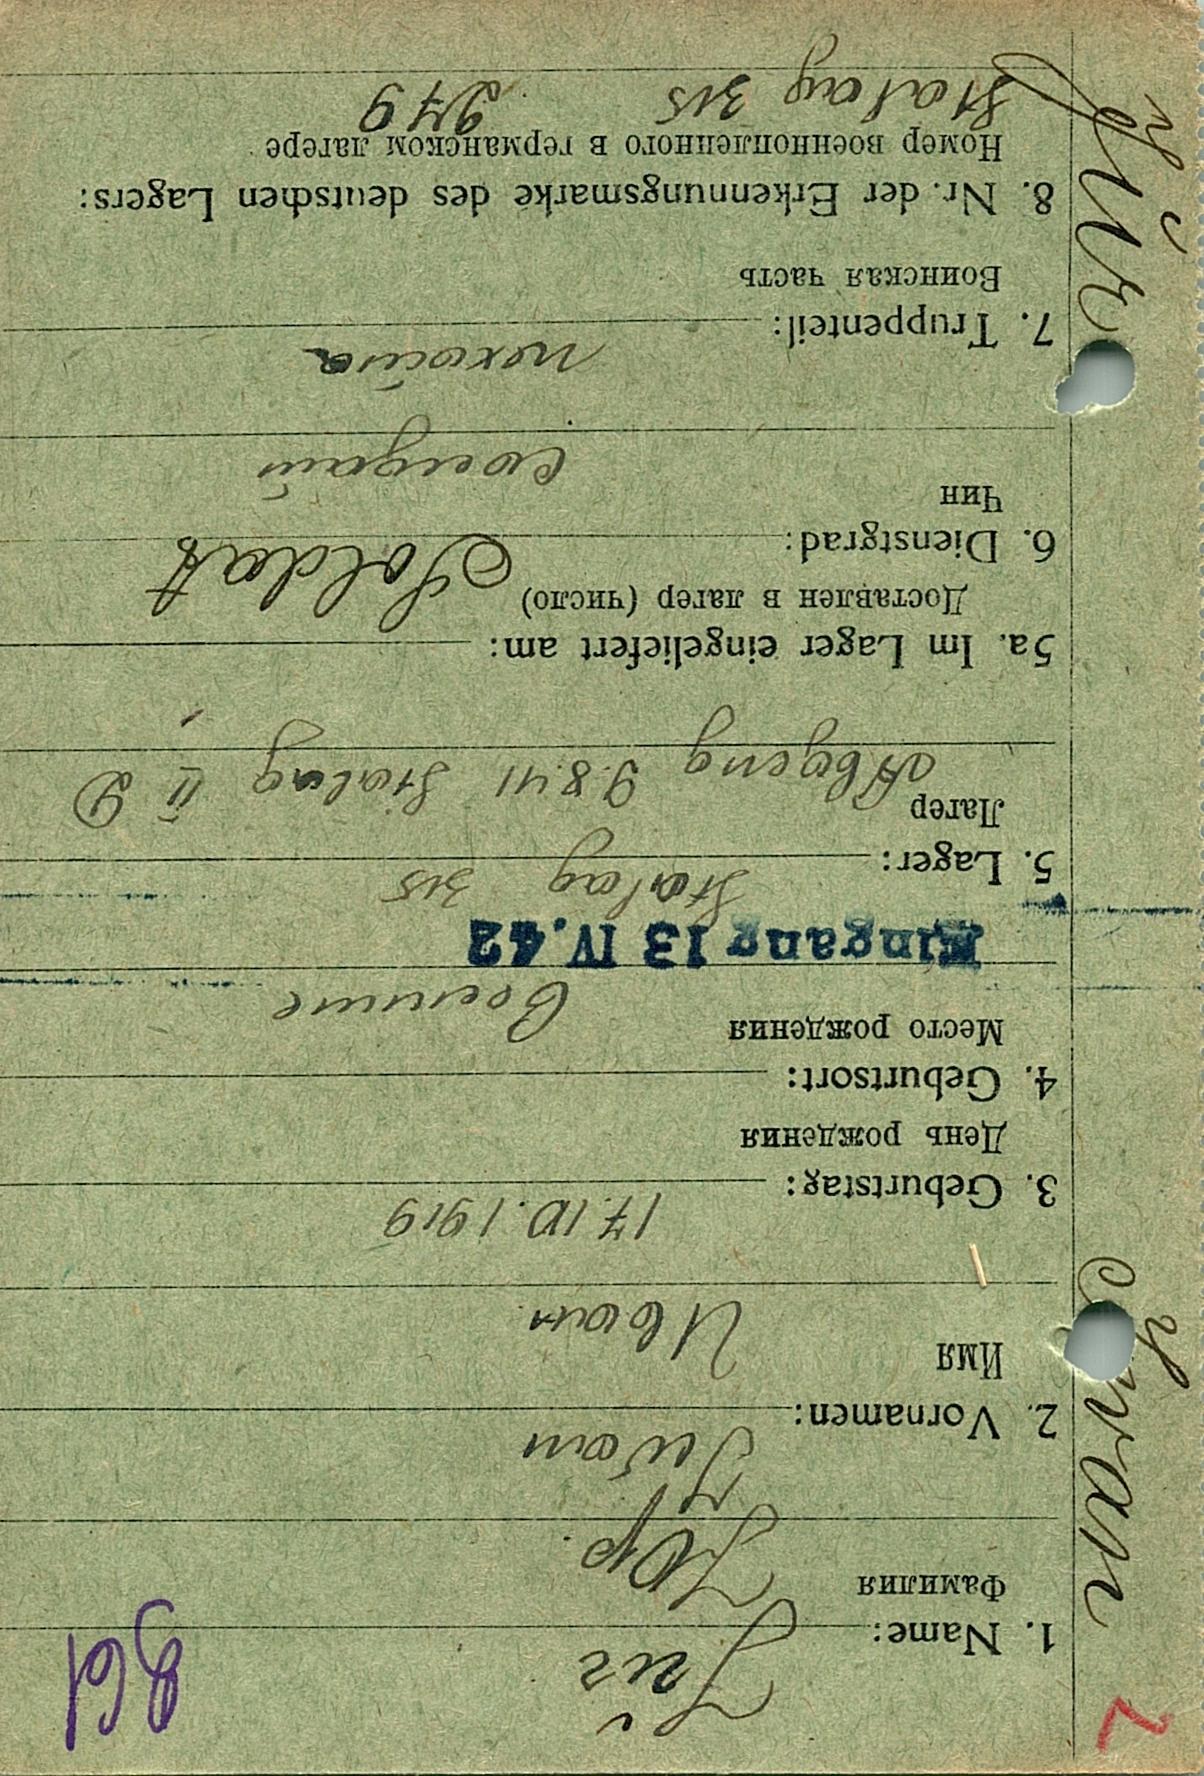 Jür Iwan
861
Jür
1. Name:
Фамилия
Юр.
Iwan
2. Vornamen:
Имя
Иван
17.IV.1919
3. Geburtstag:
День рождения
4. Geburtsort:
Место рождения
Eingang 13 IV. 42
Stalag 315
5. Lager:
Лагер
Abgang 9.8.41 Stalag II D
5a. Im Lager eingeliefert am:
Доставлен в лагер (число)
Soldat
6. Dienstgrad:
Чин
пехота
7. Truppenteil:
Воинская часть
8. Nr. der Erkennungsmarke des deutschen Lagers:
Номер военнопленного в германском лагере
Stalag 315 2479